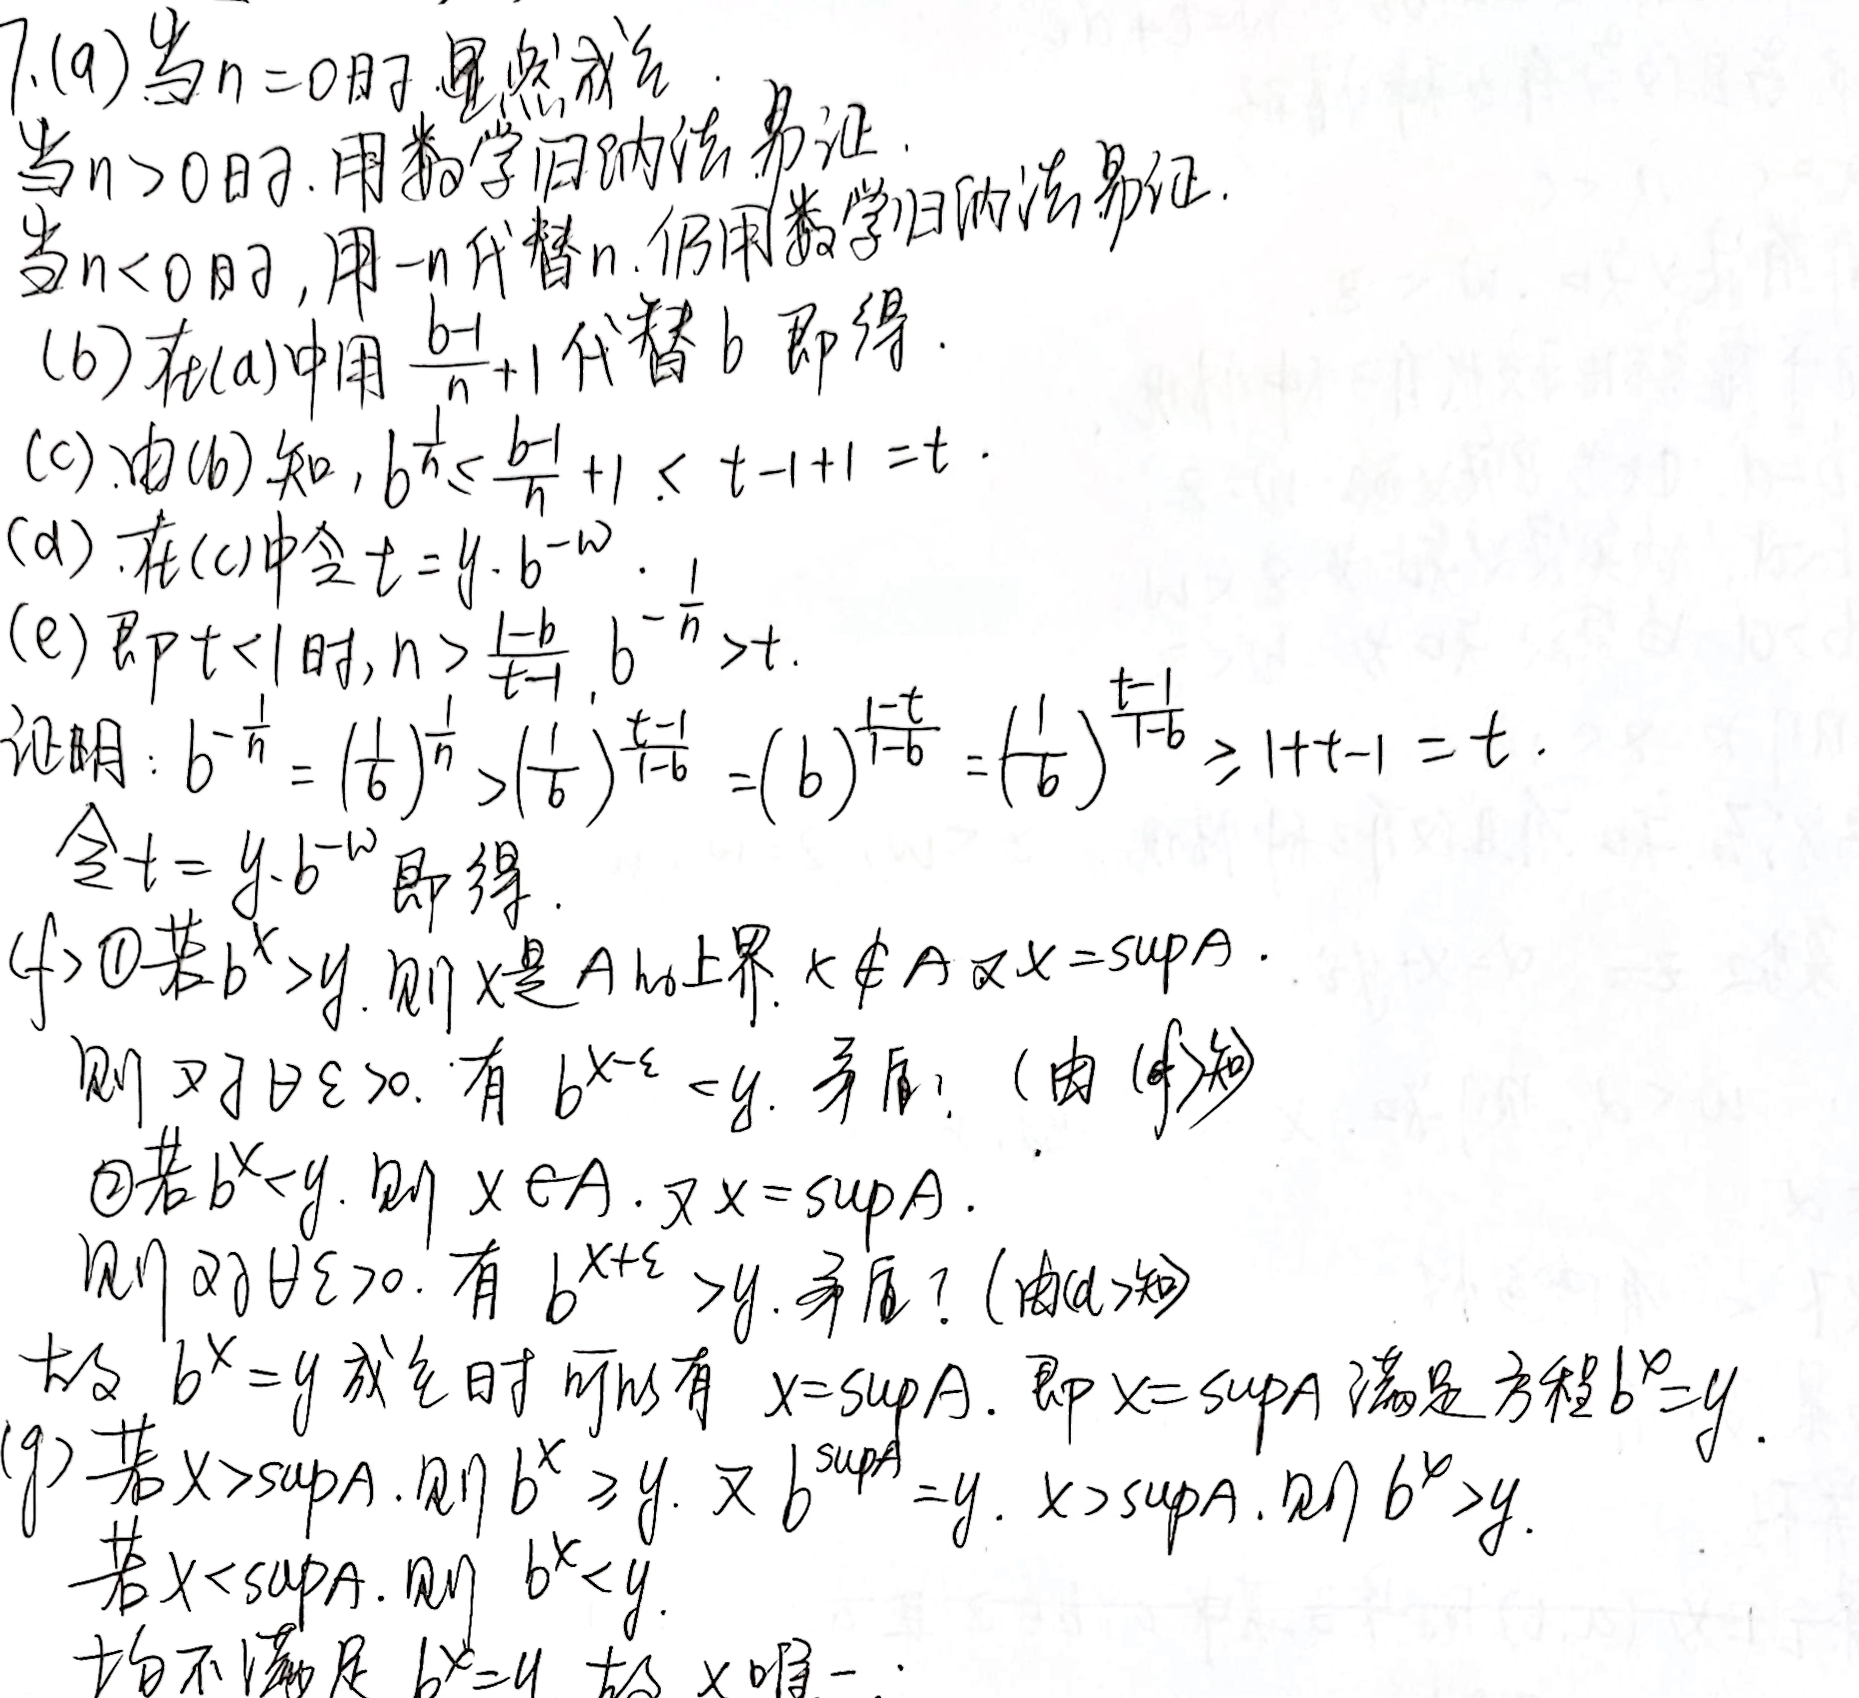 7.(a) 当n=0时 显然成立.
当n>0时. 用数学归纳法易证.
当n<0时, 用-n代替n. 仍用数学归纳法易证.
(b) 在(a)中用 \frac{b-1}{n}+1 代替 b 即得.
(c) 由(b)知, b^{\frac{1}{n}} ≤ \frac{b-1}{n}+1 < t-1+1=t.
(d) 在(c)中令 t=y·b^{-w}.
(e) 即t<1时, n>\frac{1-b}{t-1}, b^{-\frac{1}{n}}>t.
证明: b^{-\frac{1}{n}} = (\frac{1}{b})^{\frac{1}{n}} > (\frac{1}{b})^{\frac{t-1}{1-b}} = (b)^{\frac{1-t}{1-b}} = (\frac{1}{b})^{\frac{t-1}{1-b}} ≥ 1+t-1 = t.
令t=y·b^{-w} 即得.
(f) ①若b^x>y. 则x是A的上界. x∉A 又x=supA.
则对∀ε>0. 有 b^{x-ε}<y. 矛盾! (由(e)知)
②若b^x<y. 则 x∈A. 又x=supA.
则对∀ε>0. 有 b^{x+ε}>y. 矛盾! (由(d)知)
故 b^x=y成立时可以有 x=supA. 即x=supA满足方程b^x=y.
(g) 若x>supA. 则b^x≥y. 又b^{supA}=y. x>supA. 则b^x>y.
若x<supA. 则 b^x<y.
均不满足 b^x=y 故 x唯一.